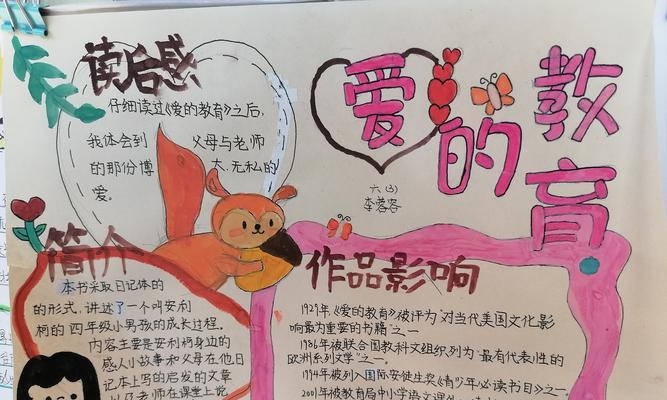 爱的教育
六(3)
李蓉容
读后感
仔细读过《爱的教育》之后,
我体会到 父母与老师
的那份博 大、无私的
爱。
简介
本书采取日记体的
的形式,讲述了一个叫安利
柯的四年级小男孩的成长过程。
内容主要是安利柯身边的
感人小故事和父母在他日
记本上写的启发的文章
以及老师在课堂上说
作品影响
1929年,《爱的教育》被评为"对当代美国文化影
响最为重要的书籍"之一
1986年被联合国教科文组织列为"最有代表性的
欧洲系列文学"之一。
1994年被列入国际安徒生奖《青少年必读书目》之一。
2001年被教育局中小学语文课